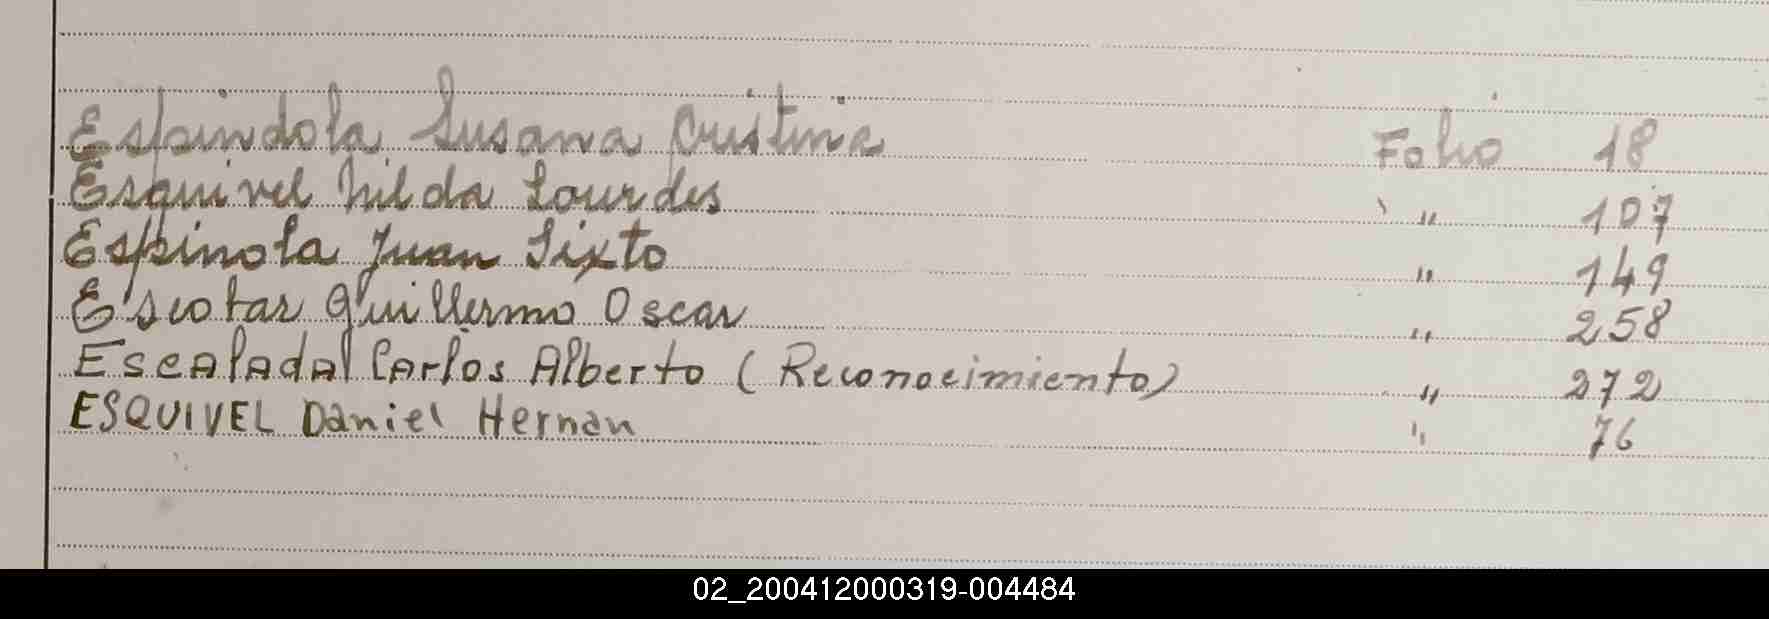 Espindola Susana Cristina Folio 18
Esquivel hilda Lourdes " 107
Espinola Juan Sixto " 149
Escobar Guillermo Oscar " 258
EscAlAdA Carlos Alberto (Reconocimiento) " 272
ESQUIVEL Daniel Hernan " 76
02_200412000319-004484